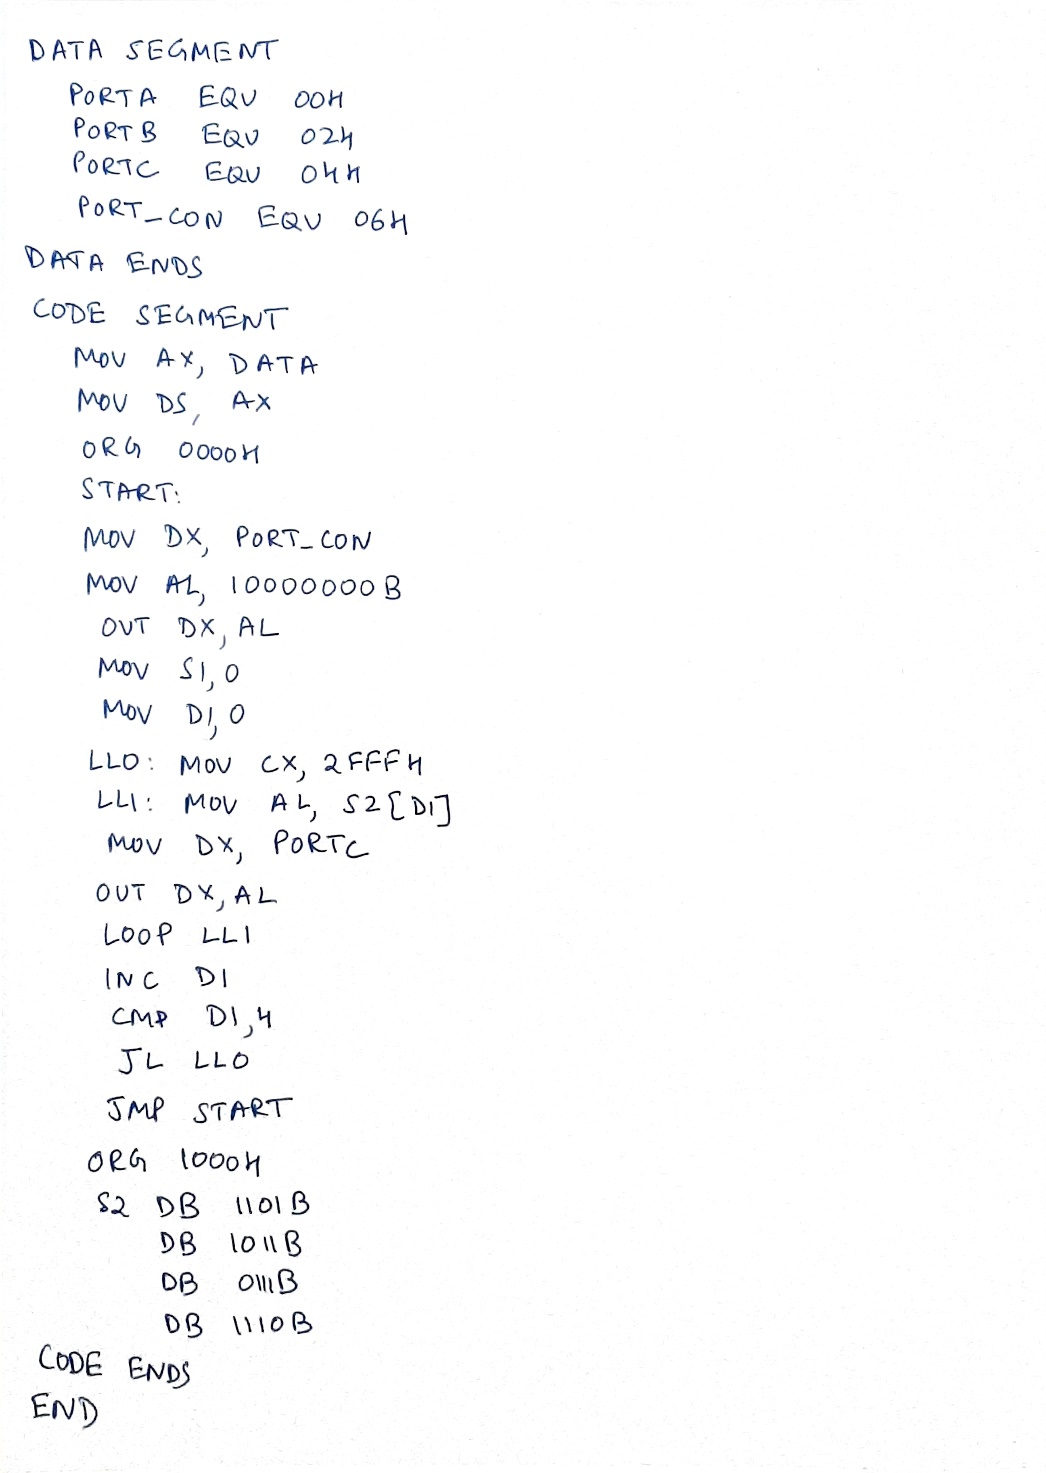 DATA SEGMENT
PORTA EQU 00H
PORTB EQU 02H
PORTC EQU 04H
PORT_CON EQU 06H
DATA ENDS
CODE SEGMENT
MOV AX, DATA
MOV DS, AX
ORG 0000H
START:
MOV DX, PORT_CON
MOV AL, 10000000B
OUT DX, AL
MOV SI, 0
MOV DI, 0
LL0: MOV CX, 2FFFH
LL1: MOV AL, S2[DI]
MOV DX, PORTC
OUT DX, AL
LOOP LL1
INC DI
CMP DI, 4
JL LL0
JMP START
ORG 1000H
S2 DB 1101B
DB 1011B
DB 0111B
DB 1110B
CODE ENDS
END